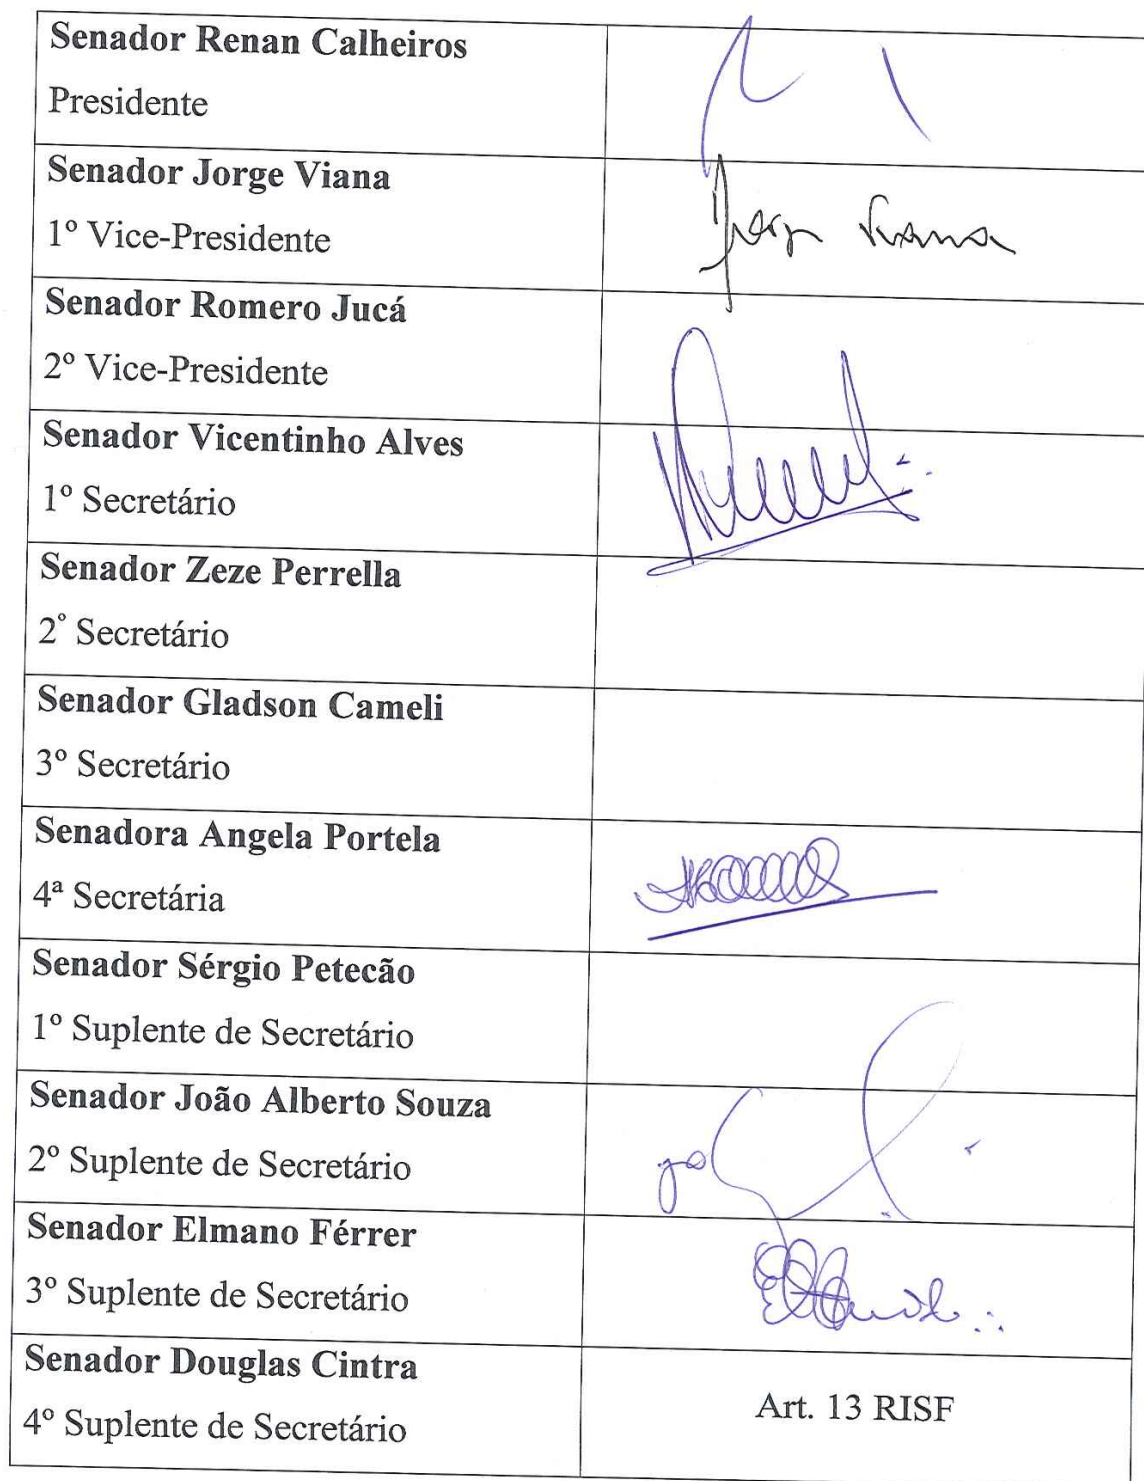 Senador Renan Calheiros
Presidente
Senador Jorge Viana
1º Vice-Presidente
Jorge Viana
Senador Romero Jucá
2º Vice-Presidente
Senador Vicentinho Alves
1º Secretário
Senador Zeze Perrella
2° Secretário
Senador Gladson Cameli
3º Secretário
Senadora Angela Portela
4ª Secretária
Senador Sérgio Petecão
1º Suplente de Secretário
Senador João Alberto Souza
2º Suplente de Secretário
Senador Elmano Férrer
3º Suplente de Secretário
Senador Douglas Cintra
4º Suplente de Secretário
Art. 13 RISF